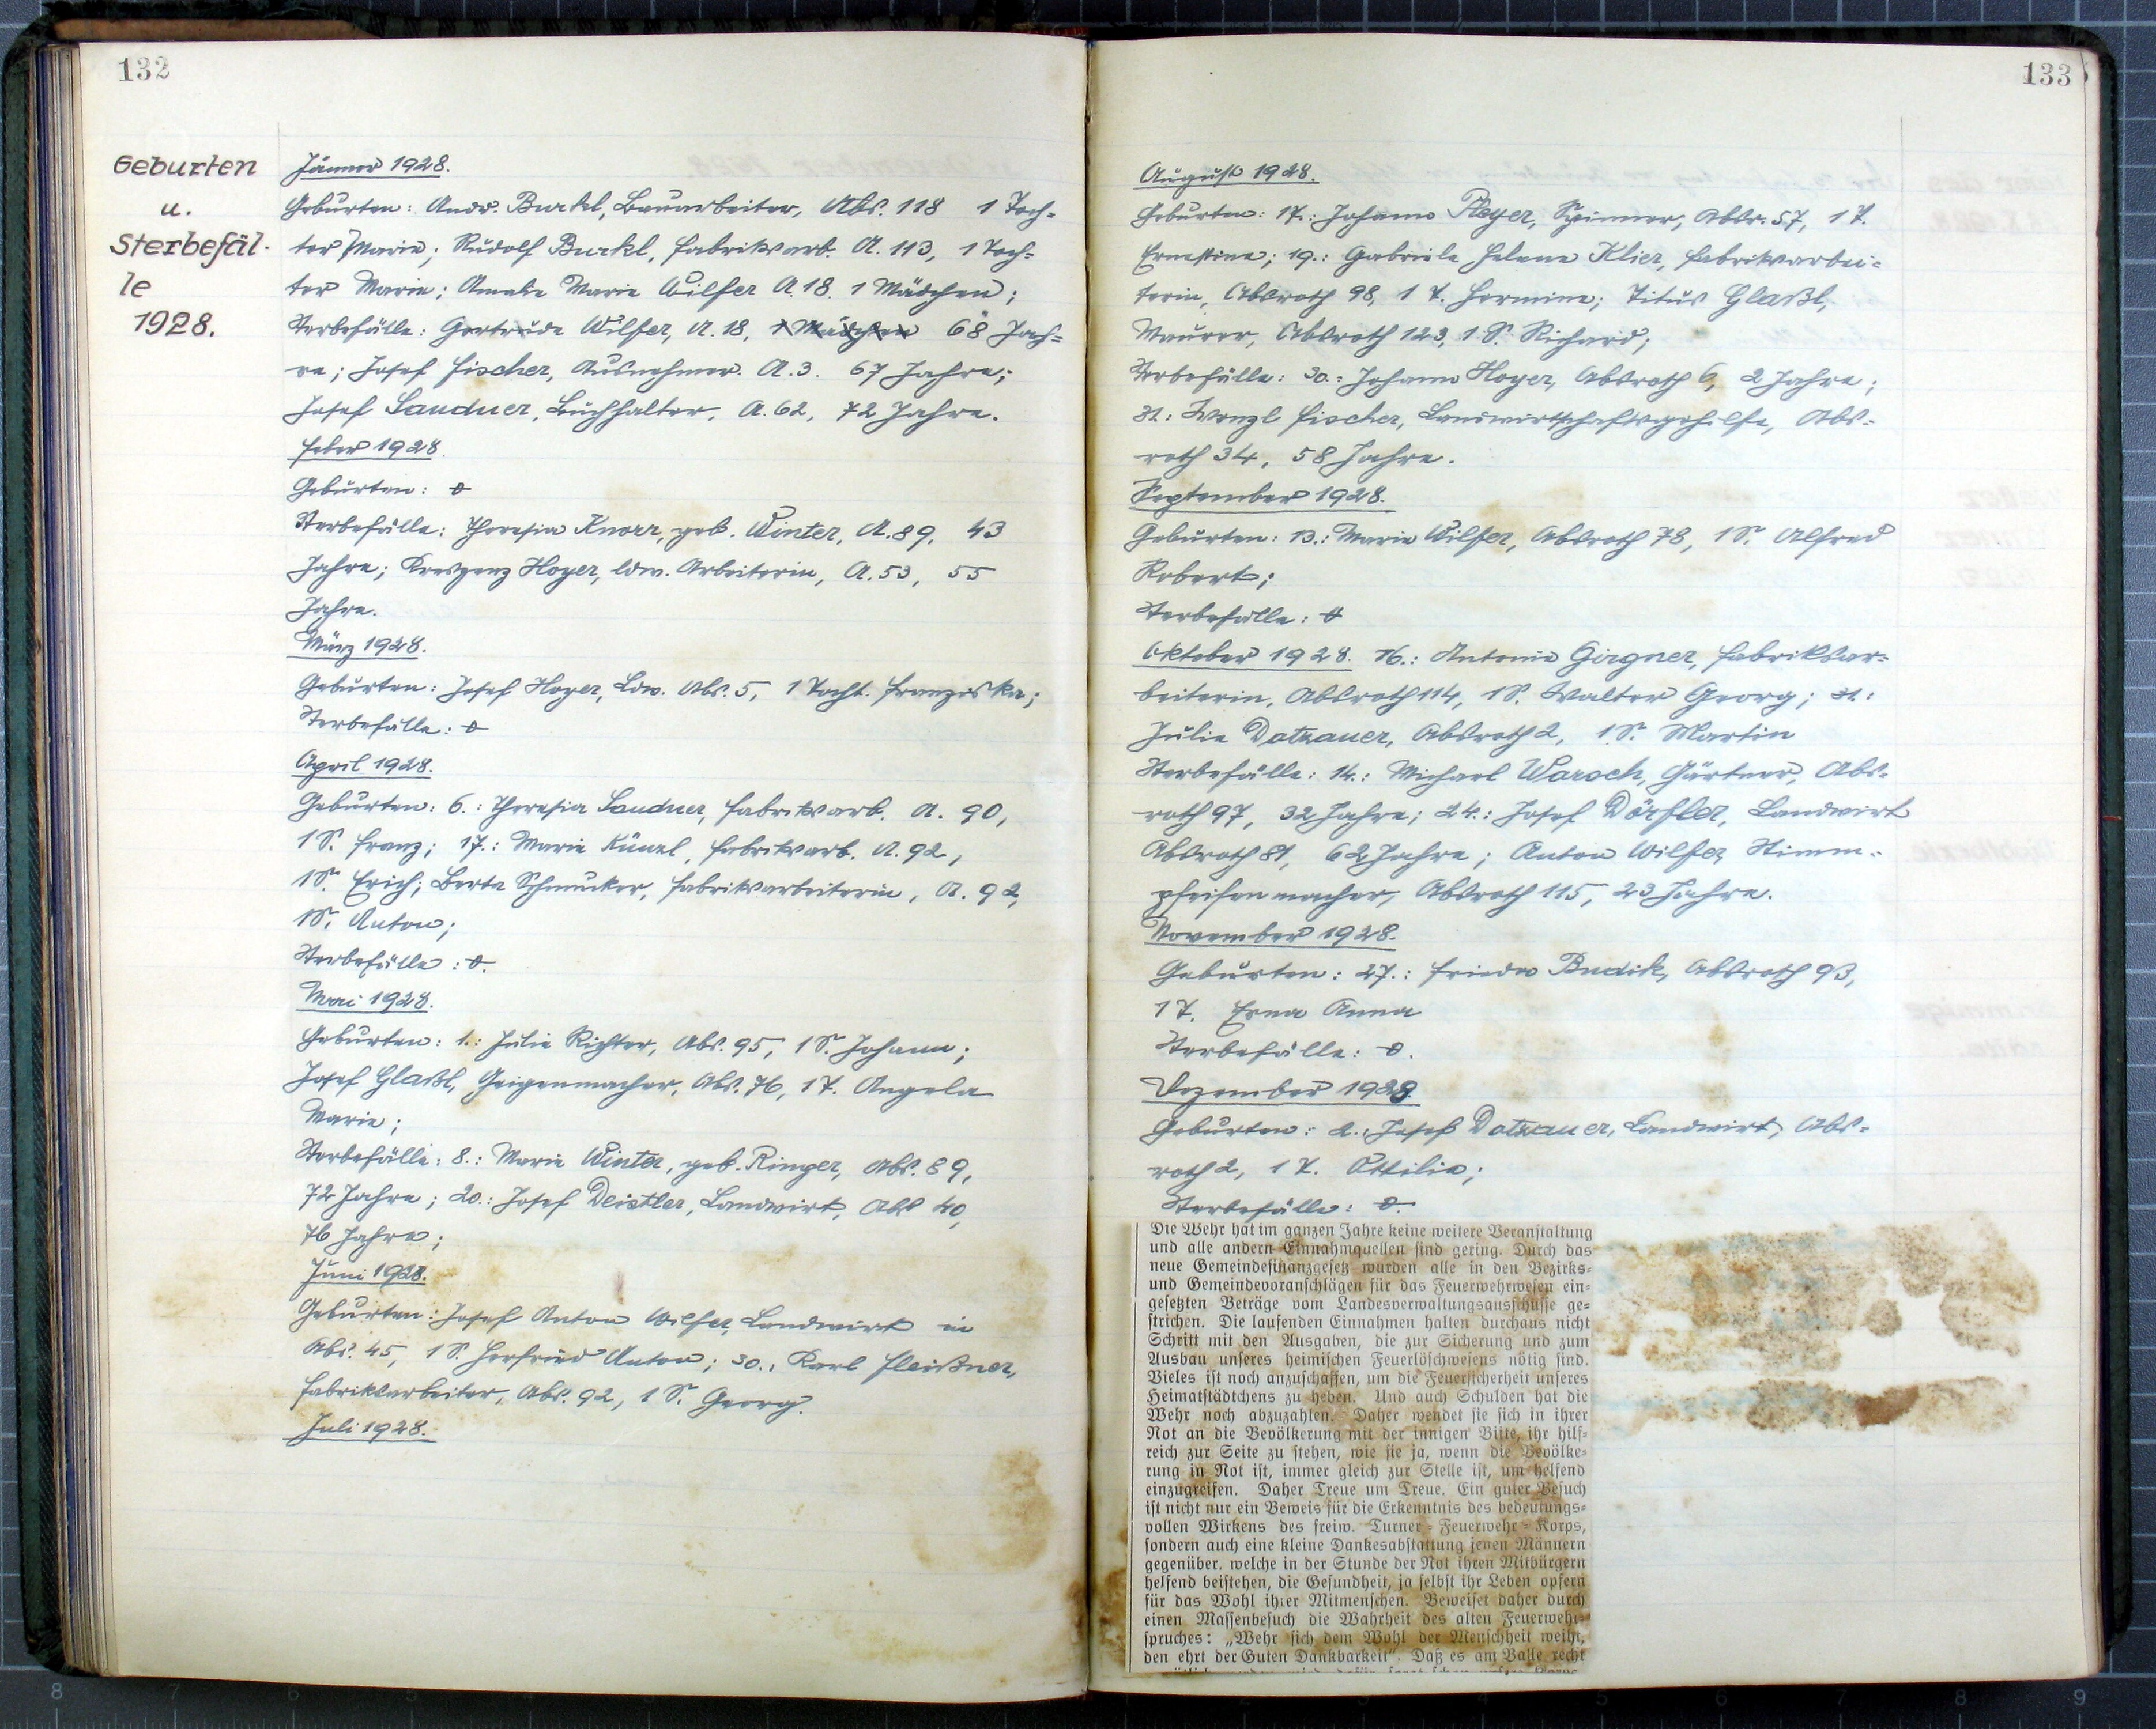 132
Geburten
u.
Sterbefäl-
le
1928.
Jänner 1928.
Geburten: Andr. Burkl, Bauarbeiter, Abs. 118 1 Toch=
ter Marie; Rudolf Burkl, Fabriksarb. A. 113, 1 Toch=
ter Marie; Amalie Marie Wilfer A. 18. 1 Mädchen;
Sterbefälle: Gertrude Wilfer, A. 18, 1 Mädchen 68 Jah=
re; Josef Fischer, Ausnehmer. A. 3. 67 Jahre;
Josef Sandner, Buchhalter, A. 62, 72 Jahre.
Feber 1928.
Geburten: 0
Sterbefälle: Theresia Knorr, geb. Winter, A. 89. 43
Jahre; Kreszenz Hoyer, ldw. Arbeiterin, A. 53, 55
Jahre.
März 1928.
Geburten: Josef Hoyer, Ldw. Abs. 5, 1 Tocht. Franziska;
Sterbefälle: 0
April 1928.
Geburten: 6.: Theresia Sandner, Fabriksarb. A. 90,
1 S. Franz; 17.: Marie Künzl, Fabriksarb. A. 92,
1 S. Erich; Berta Schmucker, Fabriksarbeiterin, A. 92,
1 S. Anton;
Sterbefälle: 0.
Mai 1928.
Geburten: 1.: Julie Richter, Abs. 95, 1 S. Johann;
Josef Glaßl, Geigenmacher, Abs. 76, 1 T. Angela
Marie;
Sterbefälle: 8.: Marie Winter, geb. Ringer, Abs. 89,
72 Jahre; 20.: Josef Deistler, Landwirt, Abs 40,
76 Jahre;
Juni 1928.
Geburten: Josef Anton Wilfer, Landwirt in
Abs. 45, 1 S. Herfried Anton; 30., Karl Fleißner,
Fabriksarbeiter, Abs. 92, 1 S. Georg.
Juli 1928.
133
August 1928.
Geburten: 17.: Johann Pleyer, Spinner, Absr. 57, 1 T.
Ernestine; 19.: Gabriele Helene Klier, Fabriksarbei=
terin, Absroth 98, 1 T. Hermine; Titus Glaßl,
Maurer, Absroth 123, 1 S. Richard;
Sterbefälle: 30.: Johann Hoyer, Absroth 6, 2 Jahre;
31.: Wenzl Fischer, Landwirtschaftsgehilfe, Abs=
roth 34, 58 Jahre.
September 1928.
Geburten: 13.: Marie Wilfer, Absroth 78, 1 S. Alfred
Robert;
Sterbefälle: 0
Oktober 1928. 16.: Antonie Girgner, Fabriksar=
beiterin, Absroth 114, 1 S. Walter Georg; 31.:
Julie Dotzauer, Absroth 2, 1 S. Martin
Sterbefälle: 14.: Michael Warsch, Gärtner, Abs=
roth 97, 32 Jahre; 24.: Josef Dörfler, Landwirt
Absroth 81, 62 Jahre; Anton Wilfer, Stimm=
pfeifenmacher, Absroth 115, 23 Jahre.
November 1928.
Geburten: 27.: Frieda Budik, Absroth 93,
1 T. Erna Anna
Sterbefälle: 0.
Dezember 1928.
Geburten: 2.: Josef Dotzauer, Landwirt, Abs=
roth 2, 1 T. Ottilie;
Sterbefälle: 0.
Die Wehr hat im ganzen Jahre keine weitere Veranstaltung
und alle andern Einnahmquellen sind gering. Durch das
neue Gemeindefinanzgesetz wurden alle in den Bezirks=
und Gemeindevoranschlägen für das Feuerwehrwesen ein=
gesetzten Beträge vom Landesverwaltungsausschusse ge=
strichen. Die laufenden Einnahmen halten durchaus nicht
Schritt mit den Ausgaben, die zur Sicherung und zum
Ausbau unseres heimischen Feuerlöschwesens nötig sind.
Vieles ist noch anzuschaffen, um die Feuersicherheit unseres
Heimatstädtchens zu heben. Und auch Schulden hat die
Wehr noch abzuzahlen. Daher wendet sie sich in ihrer
Not an die Bevölkerung mit der innigen Bitte, ihr hilf=
reich zur Seite zu stehen, wie sie ja, wenn die Bevölke=
rung in Not ist, immer gleich zur Stelle ist, um helfend
einzugreifen. Daher Treue um Treue. Ein guter Besuch
ist nicht nur ein Beweis für die Erkenntnis des bedeutungs=
vollen Wirkens des freiw. Turner = Feuerwehr = Korps,
sondern auch eine kleine Dankesabstattung jenen Männern
gegenüber, welche in der Stunde der Not ihren Mitbürgern
helfend beistehen, die Gesundheit, ja selbst ihr Leben opfern
für das Wohl ihrer Mitmenschen. Beweiset daher durch
einen Massenbesuch die Wahrheit des alten Feuerwehr=
spruches: „Wehr sich dem Wohl der Menschheit weiht,
den ehrt der Guten Dankbarkeit“. Daß es am Balle recht